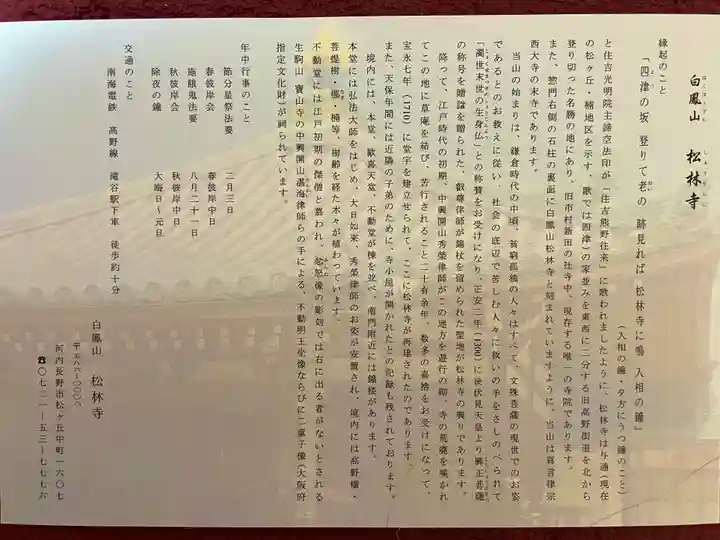 白鳳山　松林寺
はくほうざん　しょうりんじ
縁起のこと
「四津の坂　登りて老の　跡見れば　松林寺に鳴　入相の鐘」
（入相の鐘・夕方にうつ鐘のこと）
と住吉光明院主諦空法印が「住吉熊野往来」に歌われましたように、松林寺は与通（現在
の松ヶ丘・楠地区を示す、歌では四津）の家並みを東西に二分する旧高野街道を北から
登り切った名勝の地にあり、旧市村新田の社寺中、現存する唯一の寺院であります。
また、惣門右側の石柱の裏面に白鳳山松林寺と刻まれていますように、当山は真言律宗
西大寺の末寺であります。
当山の始まりは、鎌倉時代の中頃、貧窮孤独の人々はすべて、文殊菩薩の現世でのお姿
であるとのお教えに従い、社会の底辺で苦しむ人々に救いの手をさしのべられて
「濁世末世の生身仏」との称賛をお受けになり、正安二年（1300）に後伏見天皇より興正菩薩
の称号を贈諡を贈られた、叡尊律師が錫杖を留められた聖地が松林寺の興りであります。
降って、江戸時代の初期、中興開山秀榮律師がこの地方を遊行の砌、寺の荒廃を嘆かれ
てこの地に草庵を結び、苦行されること二十有余年、数多の喜捨をお受けになって、
宝永七年（1710）に堂宇を建立せられて、ここに松林寺が再建されたのであります。
また、天保年間には近隣の子弟のために、寺小屋が開かれたとの記録も残されております。
境内には、本堂、歓喜天堂、不動堂が棟を並べ、南門附近には鐘楼があります。
本堂には弘法大師をはじめ、大日如来、秀榮律師のお姿が安置され、境内には高野槇・
菩提樹・榧・楠等、樹齢を経た木々が植わっています。
不動堂には江戸初期の傑僧と慕われ、忿怒像の彫刻では右に出る者がないとされる
生駒山　寶山寺の中興開山湛海律師らの手による、不動明王坐像ならびに二童子像（大阪府
指定文化財）が祀られています。
年中行事のこと
節分星祭法要　二月三日
春彼岸会　春彼岸中日
施餓鬼法要　八月二十一日
秋彼岸会　秋彼岸中日
除夜の鐘　大晦日～元日
交通のこと
南海電鉄　高野線　滝谷駅下車　徒歩約十分
白鳳山　松林寺
〒五八六－〇〇〇六
河内長野市松ヶ丘中町一六〇七
☎〇七二一－五三－七七七六